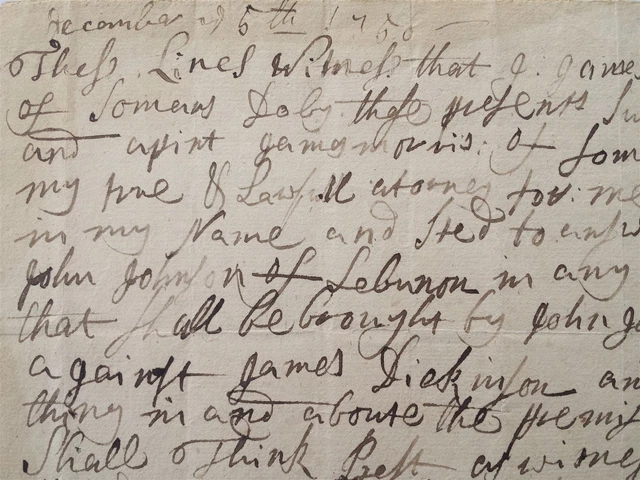 December ye 5th 1750
These Lines Witness that I James
of Somers Do by these presents
and apint James morris of Som
my true & Lawfull atorney for me
in my Name and Sted to answ
John Johnson of Lebunon in any
that shall be brought by John Jo
against James Dickinson an
thing in and aboute the premis
Shall Think Best as witnes